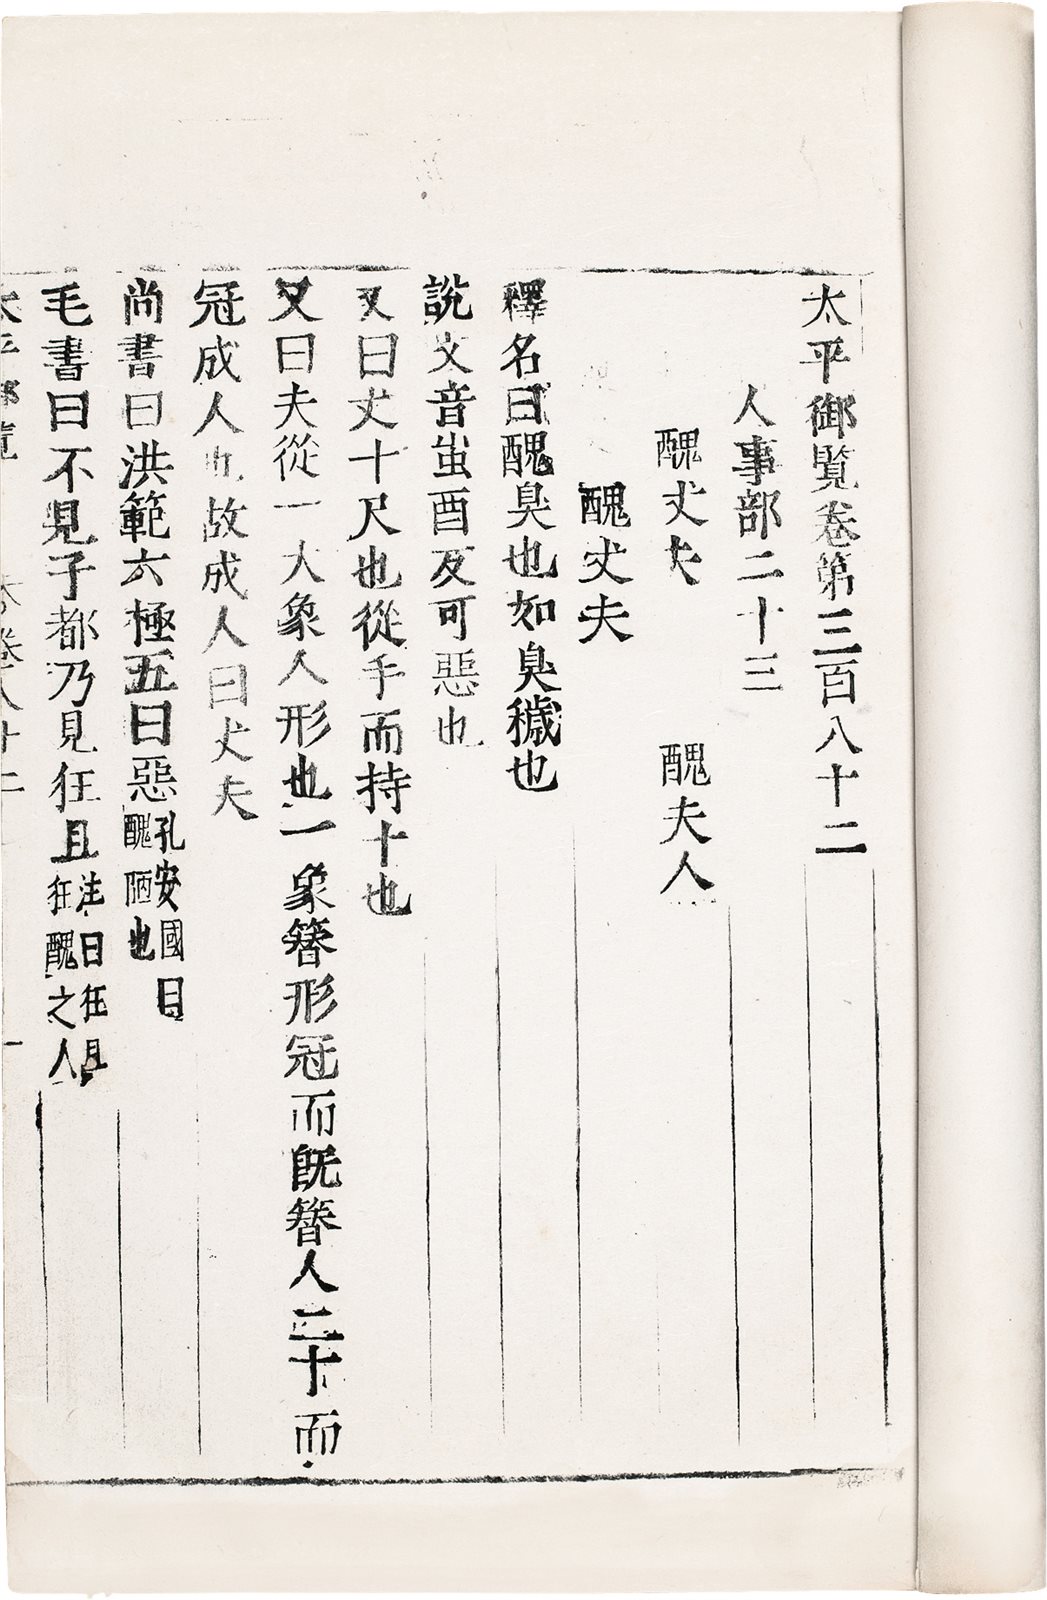 太平御覽卷第三百八十二
人事部二十三
醜丈夫 醜夫人
醜丈夫
釋名曰醜臭也如臭穢也
說文音蚩酉反可惡也
又曰丈十尺也從手而持十也
又曰夫從一大象人形也一象簪形冠而既簪人二十而
冠成人也故成人曰丈夫
尚書曰洪範六極五曰惡孔安國曰
醜陋也
毛書曰不見子都乃見狂且注曰狂且
狂醜之人
太平御覽 卷八十二 一